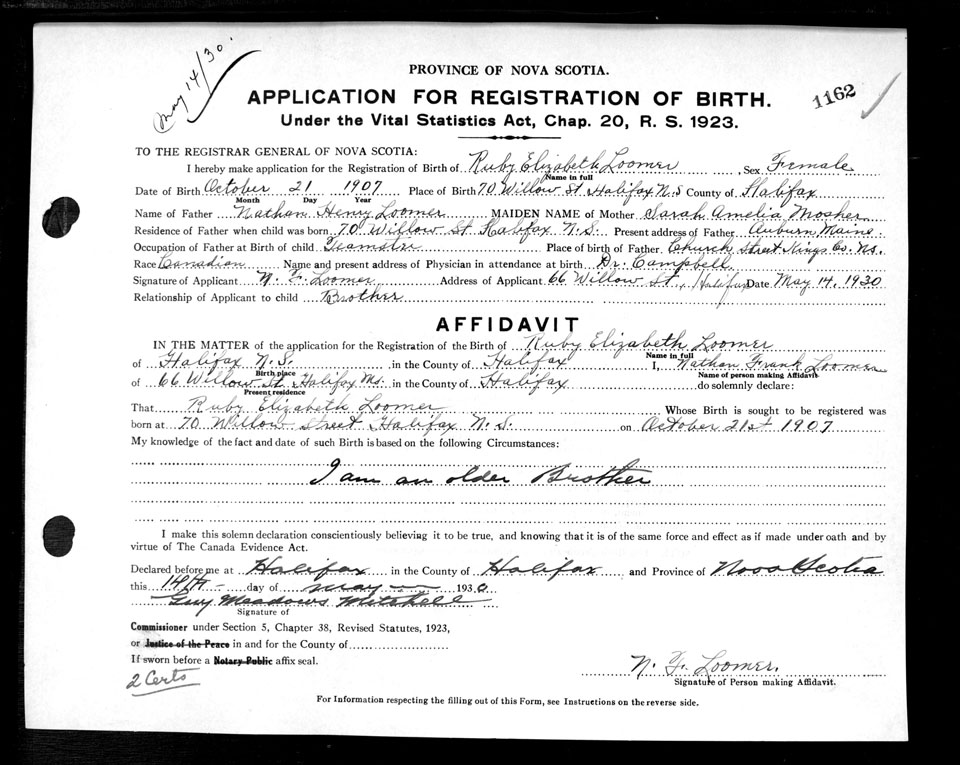 May 14/30.
PROVINCE OF NOVA SCOTIA.
1162
APPLICATION FOR REGISTRATION OF BIRTH.
Under the Vital Statistics Act, Chap. 20, R. S. 1923.
TO THE REGISTRAR GENERAL OF NOVA SCOTIA:
I hereby make application for the Registration of Birth of Ruby Elizabeth Loomer, Sex Female
Name in full
Date of Birth October 21 1907 Place of Birth 70 Willow St. Halifax N.S County of Halifax
Month Day Year
Name of Father Nathan Henry Loomer MAIDEN NAME of Mother Sarah Amelia Mosher
Residence of Father when child was born 70 Willow St Halifax N.S. Present address of Father Auburn, Maine
Occupation of Father at Birth of child Teamster Place of birth of Father Church Street Kings Co. Ns.
Race Canadian Name and present address of Physician in attendance at birth Dr. Campbell
Signature of Applicant N. F. Loomer Address of Applicant 66 Willow St., Halifax Date May 14, 1930
Relationship of Applicant to child Brother
AFFIDAVIT
IN THE MATTER of the application for the Registration of the Birth of Ruby Elizabeth Loomer
Name in full
of Halifax N.S. in the County of Halifax I, Nathan Frank Loomer
Birth place Name of person making Affidavit
of 66 Willow St. Halifax Ns. in the County of Halifax do solemnly declare:
Present residence
That Ruby Elizabeth Loomer Whose Birth is sought to be registered was
born at 70 Willow Street Halifax N.S. on October 21st 1907
My knowledge of the fact and date of such Birth is based on the following Circumstances:
I am an older Brother
I make this solemn declaration conscientiously believing it to be true, and knowing that it is of the same force and effect as if made under oath and by
virtue of The Canada Evidence Act.
Declared before me at Halifax in the County of Halifax and Province of Nova Scotia
this 14th day of May 1930
Guy Meadows Mitchell
Signature of
Commissioner under Section 5, Chapter 38, Revised Statutes, 1923,
or Justice of the Peace in and for the County of
If sworn before a Notary Public affix seal.
2 Certs
N. F. Loomer.
Signature of Person making Affidavit.
For Information respecting the filling out of this Form, see Instructions on the reverse side.